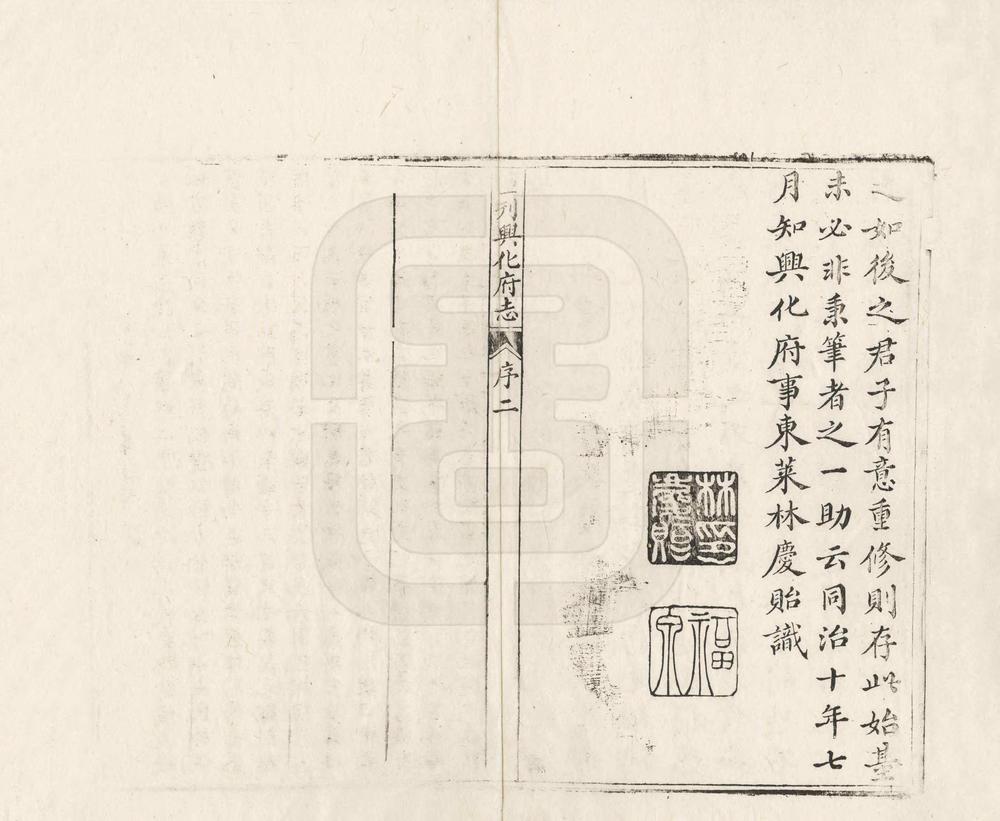 之如後之君子有意重修則存此始基
未必非秉筆者之一助云同治十年七
月知興化府事東萊林慶貽識
林印慶貽
福泉
刋興化府志
序二